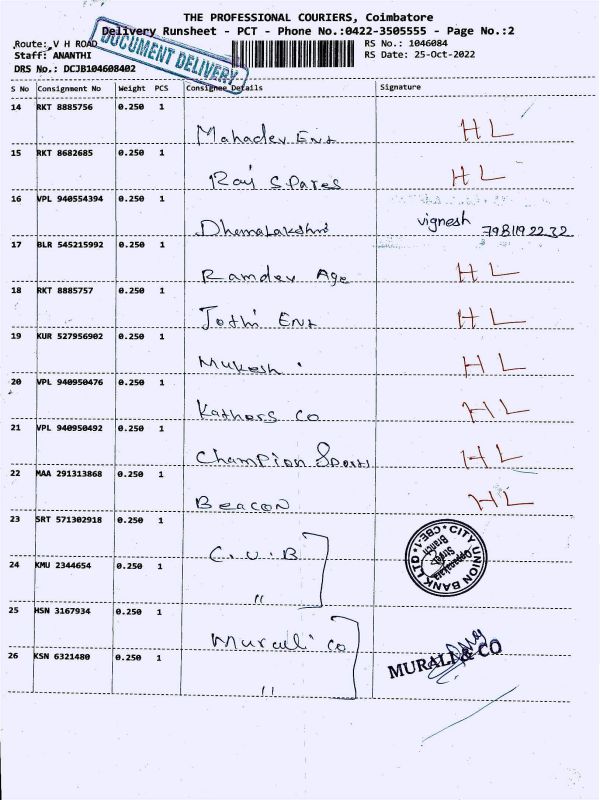 THE PROFESSIONAL COURIERS, Coimbatore
Delivery Runsheet - PCT - Phone No.:0422-3505555 - Page No.:2
Route: V H ROAD RS No.: 1046084
DOCUMENT DELIVERY
Staff: ANANTHI RS Date: 25-Oct-2022
DRS No.: DCJB104608402
S No Consignment No Weight PCS Consignee Details Signature
14 RKT 8885756 0.250 1
Mahadev Ent HL
15 RKT 8682685 0.250 1
Raj Spares HL
16 VPL 940554394 0.250 1
Dhanalakshmi vignesh 7981192232
17 BLR 545215992 0.250 1
Ramdev Age HL
18 RKT 8885757 0.250 1
Jothi Ent HL
19 KUR 527956902 0.250 1
Mukesh HL
20 VPL 940950476 0.250 1
Kathers Co HL
21 VPL 940950492 0.250 1
Champion Sports HL
22 MAA 291313868 0.250 1
Beacon HL
23 SRT 571302918 0.250 1
C.U.B
CITY UNION BANK LTD CBE-1
Branch
24 KMU 2344654 0.250 1
"
25 HSN 3167934 0.250 1
Murali Co
MURALI & CO
26 KSN 6321480 0.250 1
"